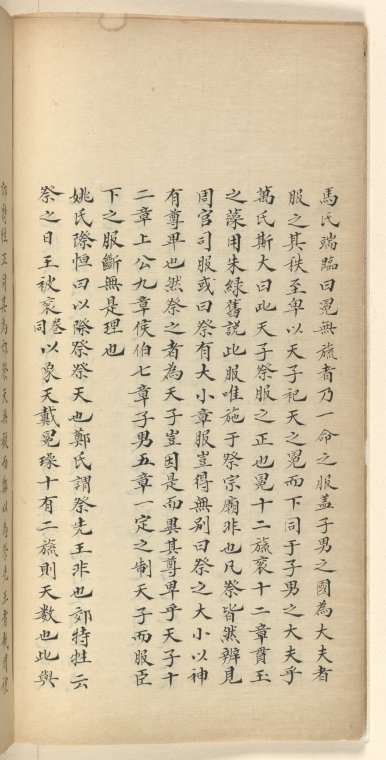 馬氏端臨曰冕無旒者乃一命之服蓋子男之國為大夫者
服之其秩至卑以天子祀天之冕而下同于子男之大夫乎
萬氏斯大曰此天子祭服之正也冕十二旒袞十二章貫玉
之藻用朱綠舊說此服唯施于祭宗廟非也凡祭皆然辨見
周官司服或曰祭有大小章服豈得無別曰祭之大小以神
有尊卑也然祭之者為天子豈因是而異其尊卑乎天子十
二章上公九章侯伯七章子男五章一定之制天子而服臣
下之服斷無是理也
姚氏際恒曰以際祭祭天也鄭氏謂祭先王非也郊特牲云
祭之日王被袞卷同以象天戴冕璪十有二旒則天數也此與